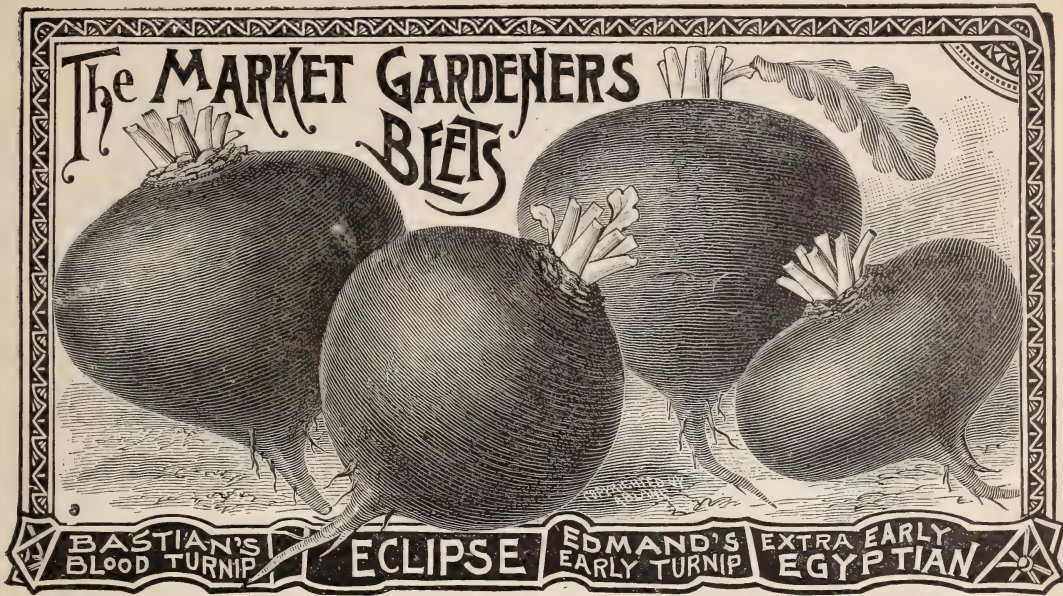 The MARKET GARDENERS
BEETS
COPYRIGHTED BY
A. BLANC
BASTIAN'S
BLOOD TURNIP
ECLIPSE
EDMAND'S
EARLY TURNIP
EXTRA EARLY
EGYPTIAN